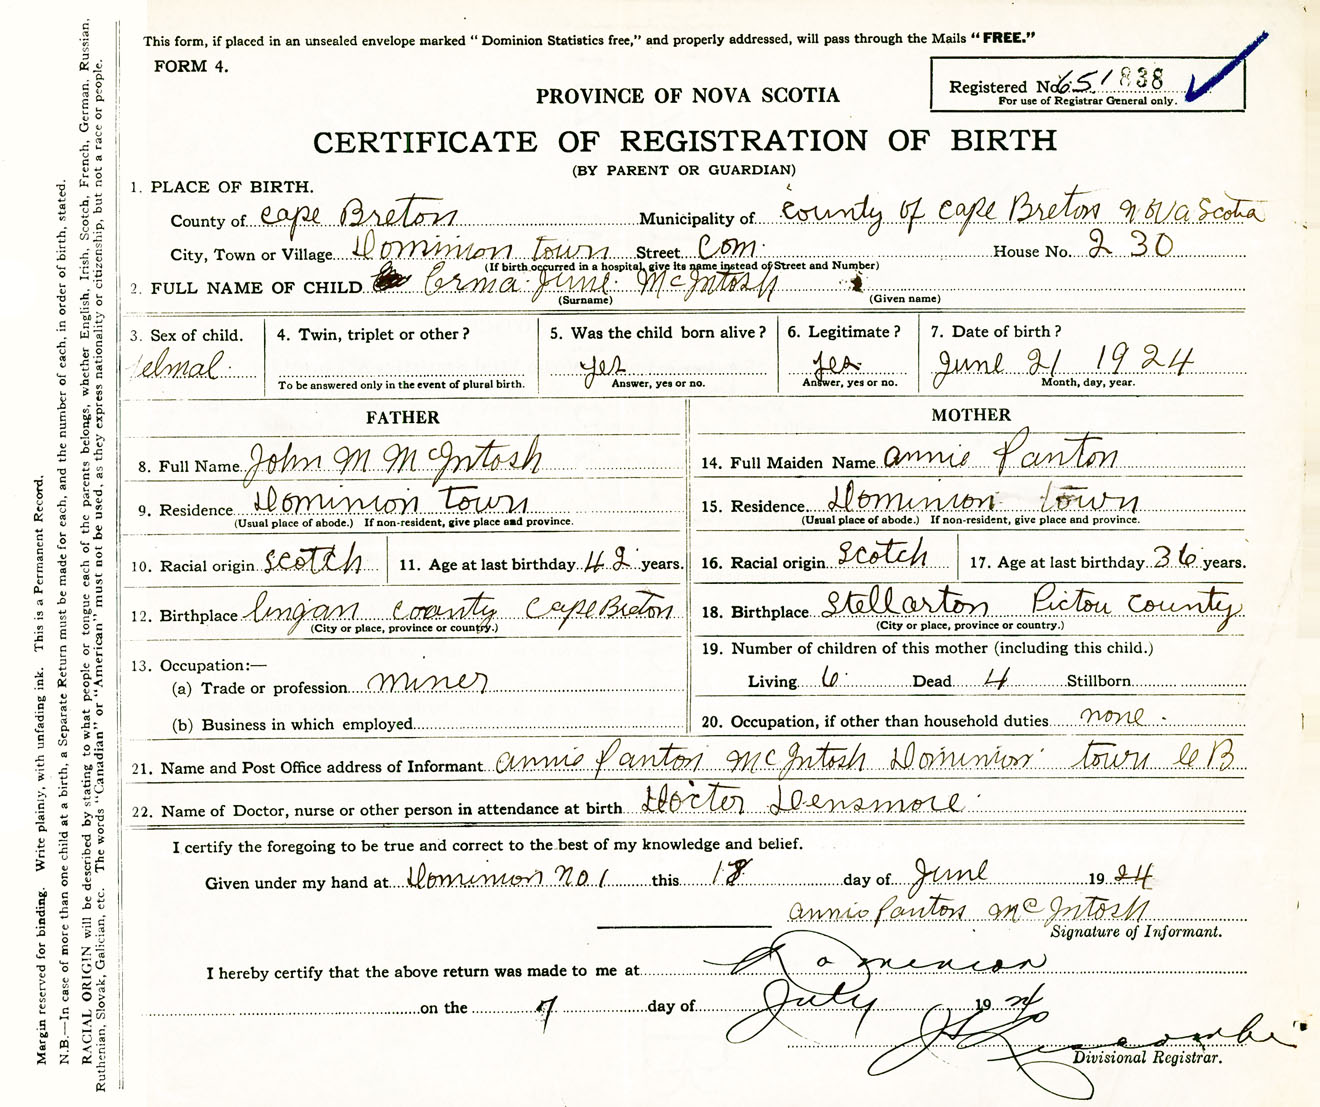 This form, if placed in an unsealed envelope marked "Dominion Statistics free," and properly addressed, will pass through the Mails "FREE."
FORM 4.
Registered No. 651838
For use of Registrar General only.
PROVINCE OF NOVA SCOTIA
CERTIFICATE OF REGISTRATION OF BIRTH
(BY PARENT OR GUARDIAN)
1. PLACE OF BIRTH.
County of Cape Breton Municipality of County of Cape Breton Nova Scotia
City, Town or Village Dominion town Street Com. House No. 230
(If birth occurred in a hospital, give its name instead of Street and Number)
2. FULL NAME OF CHILD Erma June McIntosh
(Surname) (Given name)
3. Sex of child. 4. Twin, triplet or other? 5. Was the child born alive? 6. Legitimate? 7. Date of birth?
elmal yes yes June 21 1924
To be answered only in the event of plural birth. Answer, yes or no. Answer, yes or no. Month, day, year.
FATHER MOTHER
8. Full Name John M McIntosh 14. Full Maiden Name Annie Panton
9. Residence Dominion town 15. Residence Dominion town
(Usual place of abode.) If non-resident, give place and province. (Usual place of abode.) If non-resident, give place and province.
10. Racial origin Scotch 11. Age at last birthday 42 years. 16. Racial origin Scotch 17. Age at last birthday 36 years.
12. Birthplace lingan coanty Cape Breton 18. Birthplace Stellarton Pictou County
(City or place, province or country.) (City or place, province or country.)
13. Occupation:— 19. Number of children of this mother (including this child.)
(a) Trade or profession miner Living 6 Dead 4 Stillborn
(b) Business in which employed 20. Occupation, if other than household duties none.
21. Name and Post Office address of Informant Annie Panton McIntosh Dominion town C B
22. Name of Doctor, nurse or other person in attendance at birth Docter Densmore
I certify the foregoing to be true and correct to the best of my knowledge and belief.
Given under my hand at Dominion No. 1 this 18 day of June 1924
Annie Panton McIntosh
Signature of Informant.
I hereby certify that the above return was made to me at Dominion
on the 7 day of July 1924
Liscombe
Divisional Registrar.
Margin reserved for binding. Write plainly, with unfading ink. This is a Permanent Record.
N.B.—In case of more than one child at a birth, a Separate Return must be made for each, and the number of each, in order of birth, stated.
RACIAL ORIGIN will be described by stating to what people or tongue each of the parents belongs, whether English, Irish, Scotch, French, German, Russian,
Ruthenian, Slovak, Galician, etc. The words "Canadian" or "American" must not be used, as they express nationality or citizenship, but not a race or people.